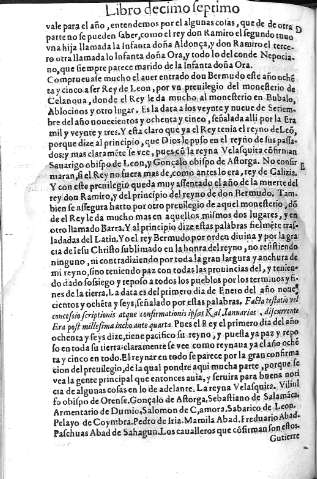 Libro decimo septimo
vale para el año, entendemos por el algunas cosas, que de de otra D
parte no se pueden saber, como el rey don Ramiro el segundo tuuo
vna hija llamada la Infanta doña Aldonça, y don Ramiro el terce-
ro otra llamada lo Infanta doña Ora, y todo lo del conde Nepocia-
no, que siempre parece marido de la Infanta doña Ora.
Comprueuase mucho el auer entrado don Bermudo este año ochē
ta y cinco a ser Rey de Leon, por vn preuilegio del monesterio de
Celanoua, donde el Rey le da mucho al monesterio en Bubalo,
Ablocinos y otro lugar. Es la data a los veynte y nueue de Setiem-
bre del año nouecientos y ochenta y cinco, señalada alli por la Era
mil y veynte y tres. Y esta claro que ya el Rey tenia el reyno de Leō,
porque dize al principio, que Dios le puso en el reyno de sus passa-
dos: y mas claramēte se vee, pues cō la reyna Velasquita cōfirman
Sauarigo obispo de Leon, y Gonçalo obispo de Astorga. No confir
maran, si el Rey no fuera mas de, como antes lo era, rey de Galizia. E
Y con este preuilegio queda muy assentado el año de la muerte del
rey don Ramiro, y del principio del reyno de don Bermudo. Tam-
bien se assegura harto por otro preuilegio de aquel monesterio, dō
de el Rey le da mucho mas en aquellos mismos dos lugares, y en
otro llamado Barra. Y al principio dize estas palabras fielmēte tras-
ladadas del Latin. Yo el rey Bermudo por orden diuina y por la gra
cia de Iesu Christo sublimado en la honra del reyno, no resistiendo
ninguno, ni contradiziendo por toda la gran largura y anchura de
mi reyno, sino teniendo paz con todas las prouincias del, y tenien-
do dado sosiego y reposo a todos los pueblos por los terminos y fi-
nes de la tierra. La data es del primero dia de Enero del año noue-
cientos y ochēta y seys, señalado por estas palabras, Facta testatio vel
concessio scriptionis atque confirmationis ipsas Kal. Ianuarias, discurrente
Era post millesima incho ante quarta. Pues si el Rey el primero dia del año
ochenta y seys dize, tiene pacifico su reyno, y puesta ya paz y repo-
so en toda su tierra: claramente se vee como reynaua ya el año ochē
ta y cinco en todo. El reynar en todo se parece por la gran confirma
cion del preuilegio, de la qual pondre aqui mucha parte, porque se
vea la gente principal que entonces auia, y seruira para buena noti
cia de algunas cosas en lo de adelante. La reyna Velasquita. Viliul
fo obispo de Orense, Gonçalo de Astorga, Sebastiano de Salamāca,
Armentario de Dumio, Salomon de Çamora, Sabarico de Leon,
Pelayo de Coymbra, Pedro de Iria. Mamila Abad. Freduario Abad.
Paschuas Abad de Sahagun. Los caualleros que cōfirman son estos.
Gutierre